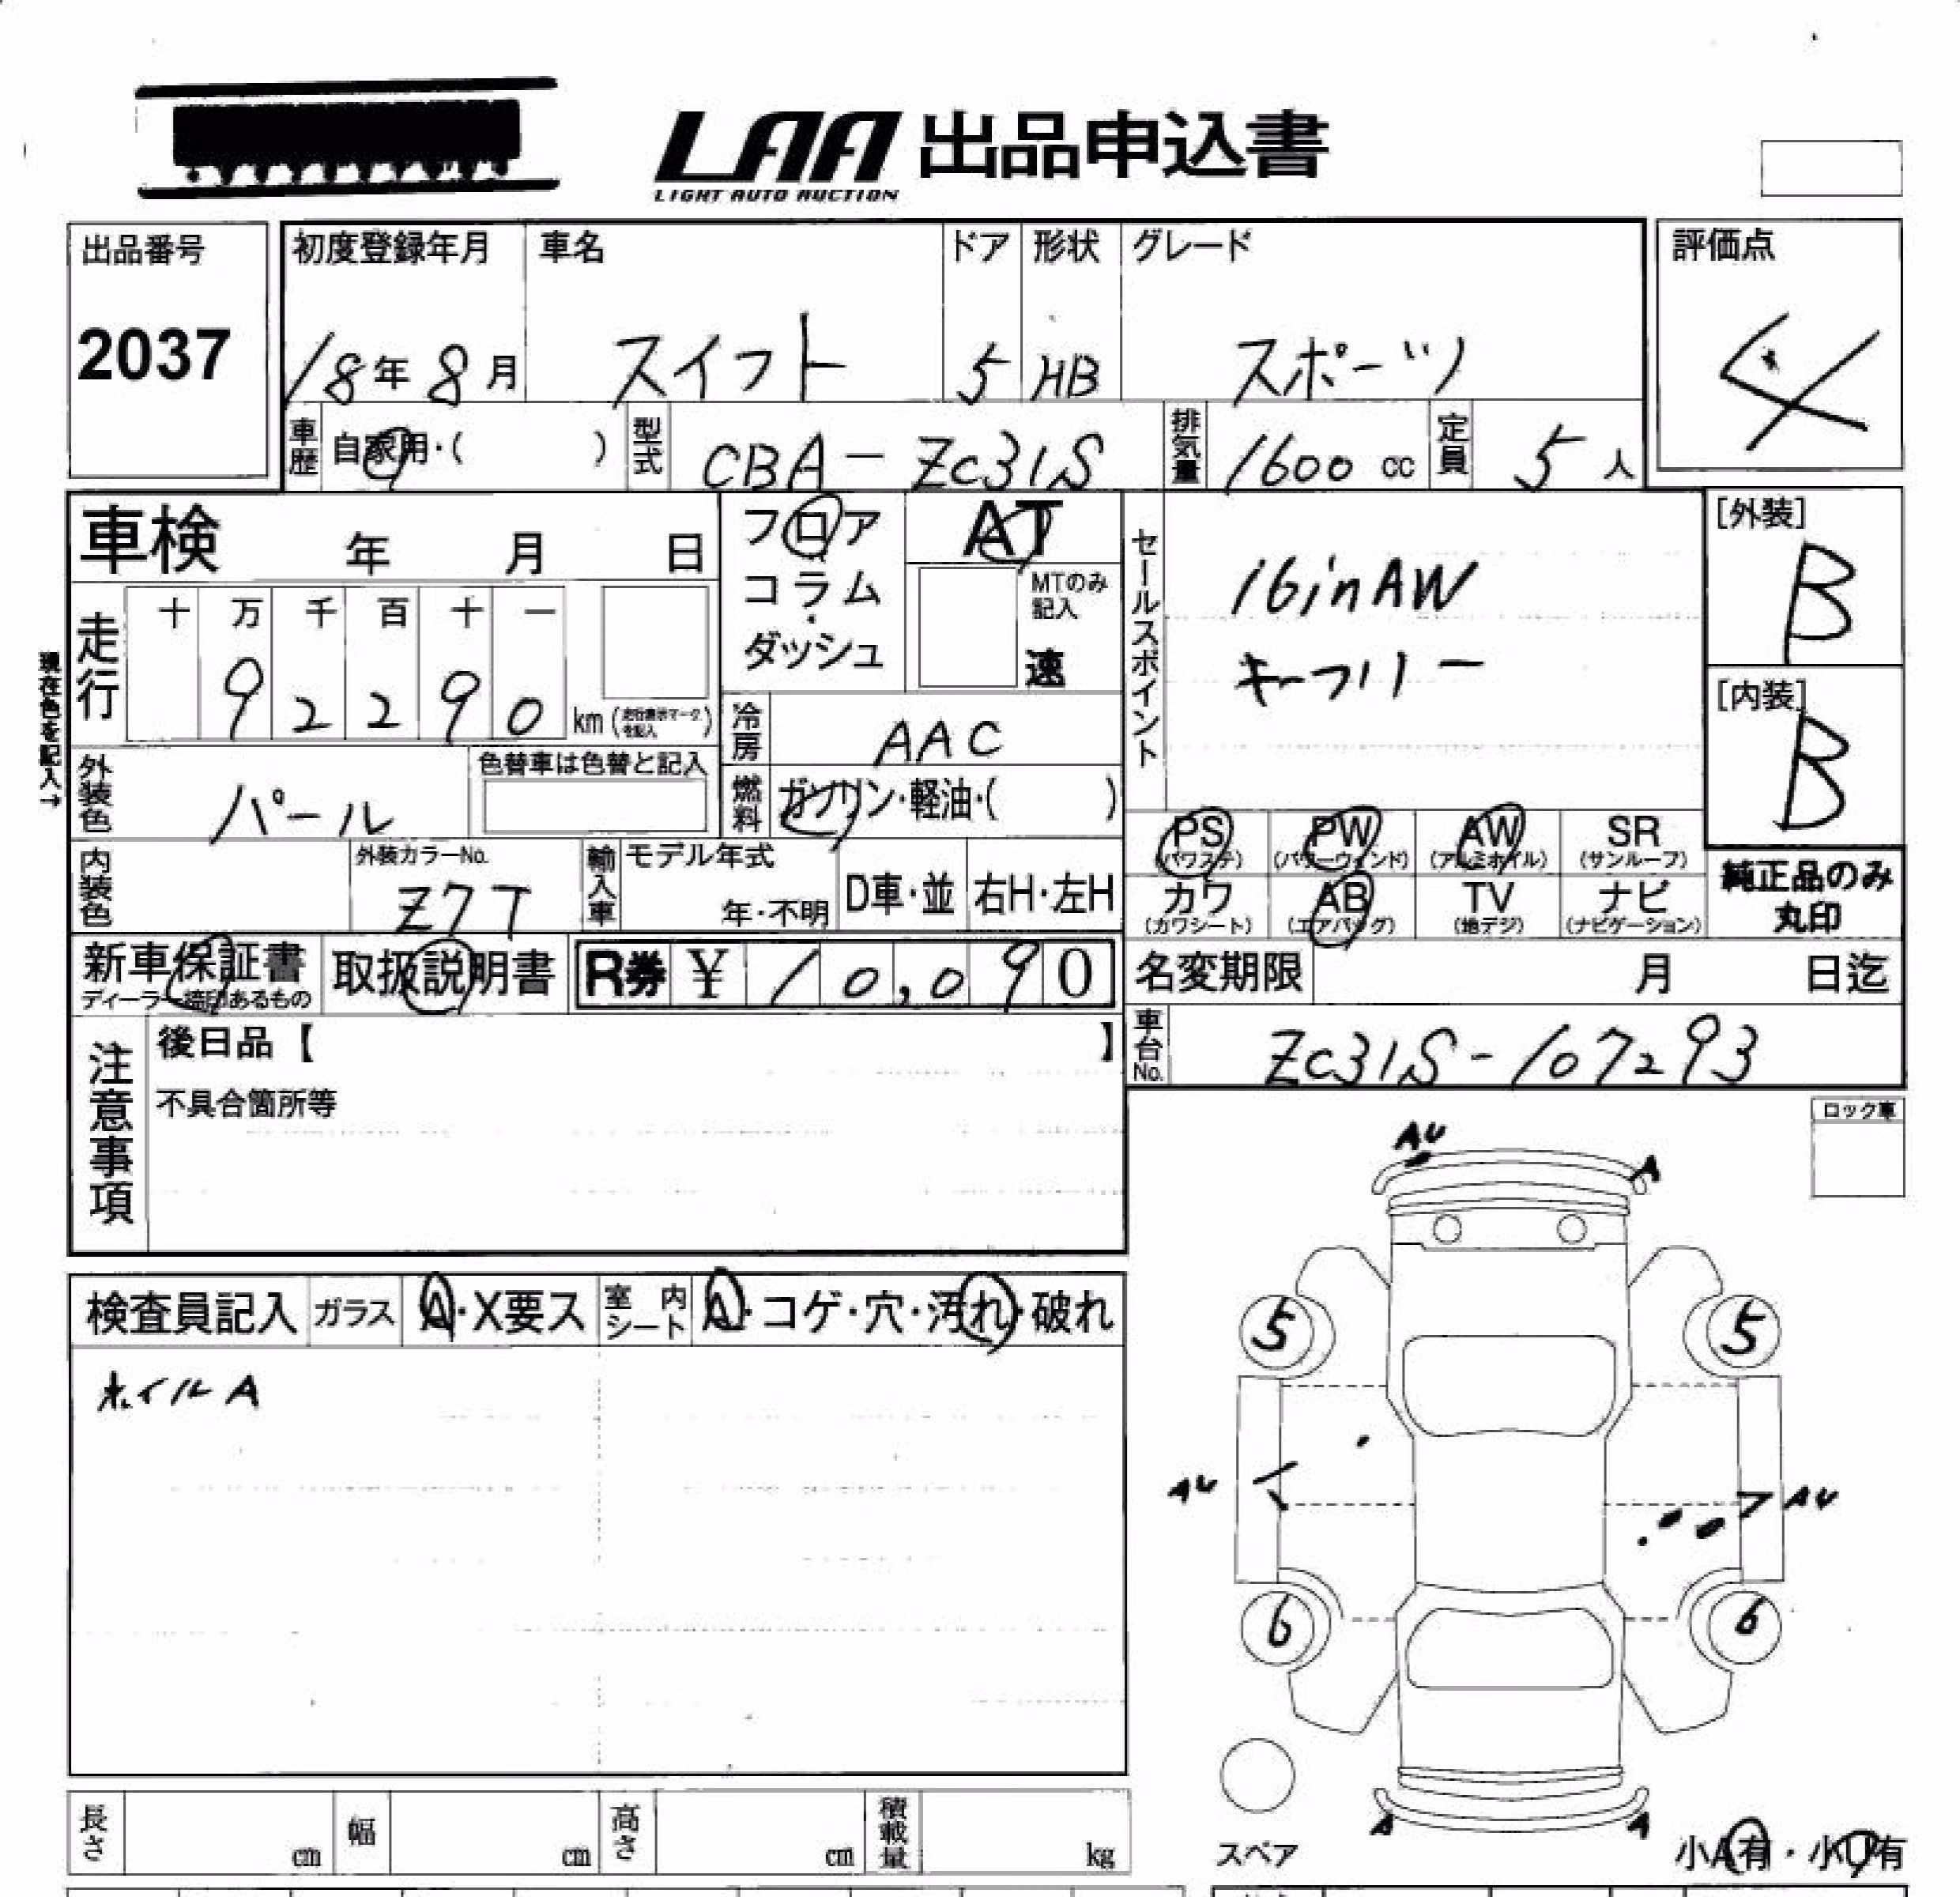 LAA 出品申込書
LIGHT AUTO AUCTION
出品番号
2037
初度登録年月
18年8月
車名
スイフト
ドア
5
形状
HB
グレード
スポーツ
評価点
4
車歴
自家用・( )
型式
CBA-ZC31S
排気量
1600 cc
定員
5人
車検 年 月 日
フロア
コラム
ダッシュ
AT
MTのみ
記入
速
セールスポイント
16inAW
キーフリー
[外装]
B
[内装]
B
現在色を記入→
走行
十 万 千 百 十 一
9 2 2 9 0 km (走行表示マークを記入)
冷房
AAC
外装色
パール
色替車は色替と記入
燃料
ガソリン・軽油・( )
内装色
外装カラーNo.
Z7T
輸入車
モデル年式
年・不明
D車・並
右H・左H
PS
(パワステ)
PW
(パワーウィンド)
AW
(アルミホイル)
SR
(サンルーフ)
カワ
(カワシート)
AB
(エアバッグ)
TV
(地デジ)
ナビ
(ナビゲーション)
純正品のみ
丸印
新車保証書
ディーラー捺印あるもの
取扱説明書
R券 ¥ 10,090
名変期限 月 日迄
車台No.
ZC31S-107293
注意事項
後日品【 】
不具合箇所等
検査員記入
ガラス
A・X要ス
室内シート
A・コゲ・穴・汚れ・破れ
ホイルA
ロック車
AU
A
5
5
AU
AU
6
6
スペア
A
A
小A有・小U有
長さ cm
幅 cm
高さ cm
積載量 kg